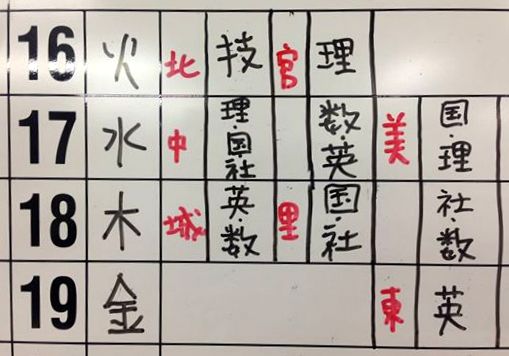 16 火 北 技 官 理
17 水 中 理・国・社 数・英 美 国・理
18 木 城 英・数 里 国・社 社・数
19 金 東 英